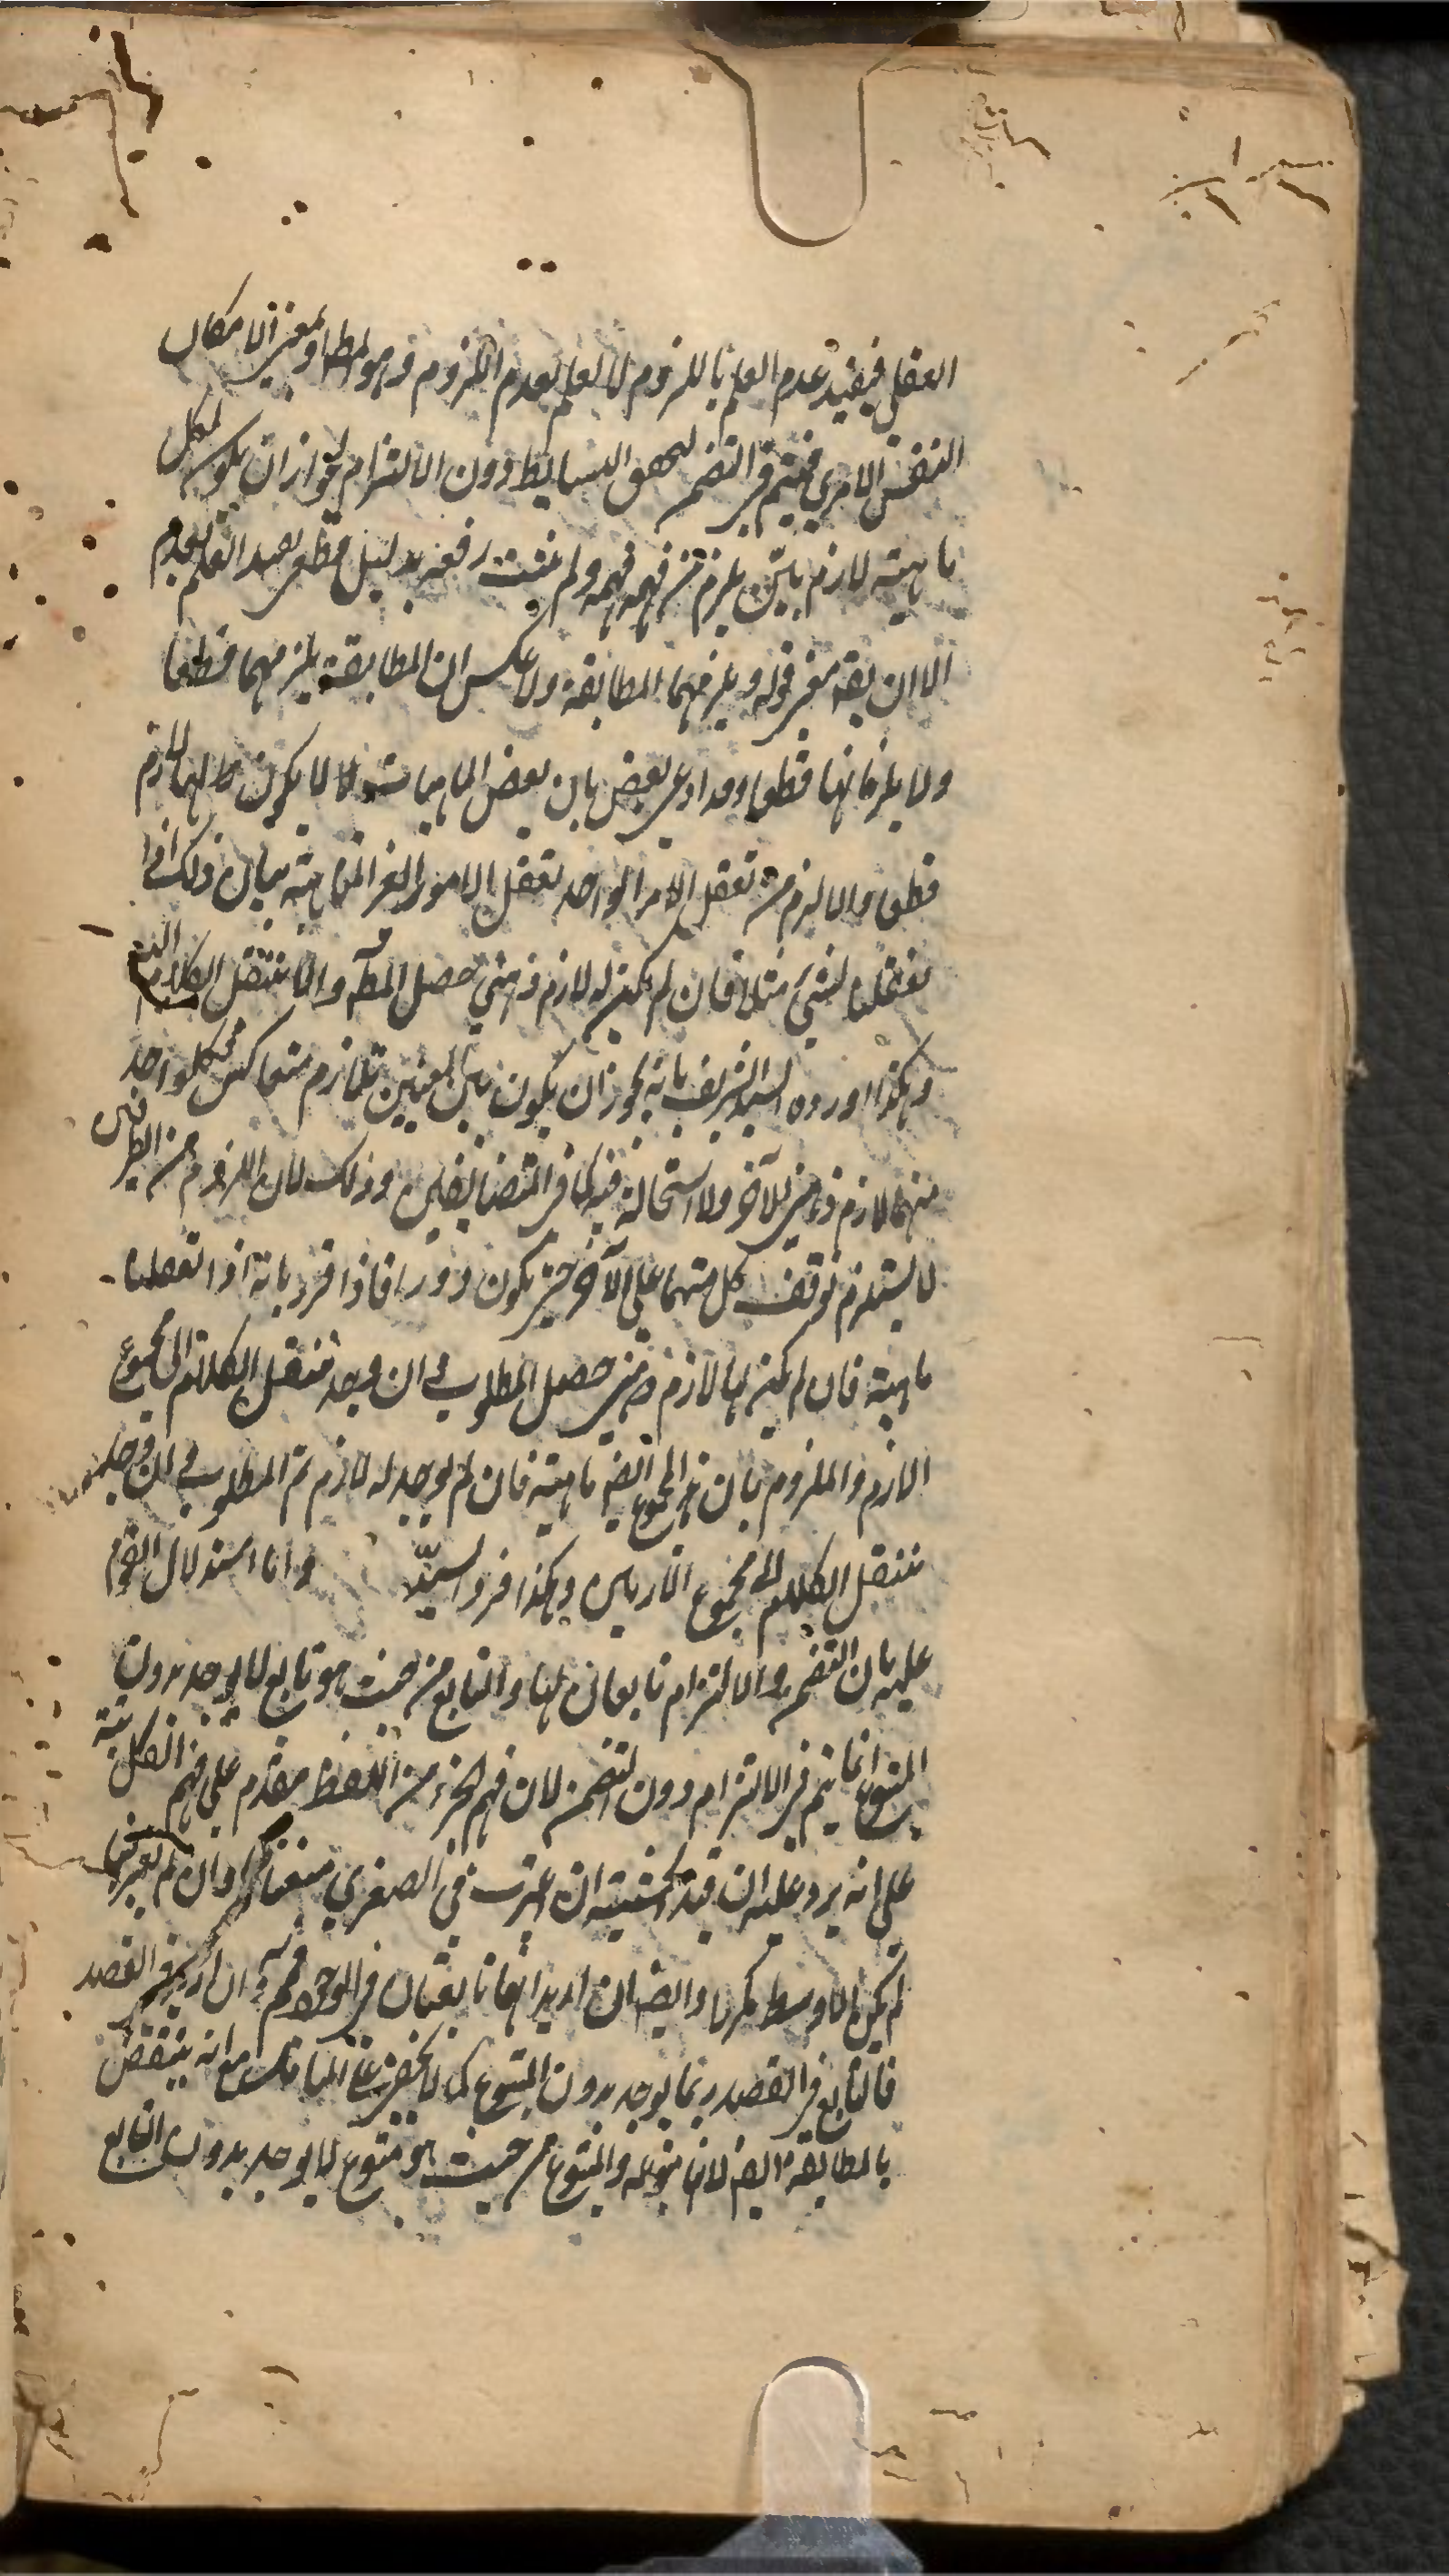 العقل فيفيد عدم العلم بالملزوم لا العلم بعدم الملزوم وهو المط او بمعنى الامكان
النفس الامري فيتم في التضمن لتحقق البسايط دون الالتزام لجواز ان يكون لكل
ماهية لازم بين يلزم من فهمه فهمه ولم يثبت رفعه بدليل قطعي يفيد العلم بعدم
الا ان يقه معنى قوله ويلزمهما المطابقة ولا عكس ان المطابقة يلزمهما قطعا
ولا يلزمانها قطعا وقد ادعى بعض بان بعض الماهيات لا يكون لها لازم
قطعا والا لزم من تعقل الامر الواحد تعقل الامور الغير المتناهية بيان ذلك انا اذا
تعقلنا لشيء مثلا فان لم يكن له لازم ذهني حصل المط والا ننتقل الكلام اليه
وهكذا اورده السيد الشريف بانه يجوز ان يكون بين المعنيين تلازم متعاكس فكل واحد
منهما لازم ذهني للآخر ولا استحالة فيه كما في المتضايفين وذلك لان اللزوم من الطرفين
لا يستلزم توقف كل منهما على الآخر حتى يكون دورا فاذا قرر بانه اذا تعقلنا
ماهية فان لم يكن لها لازم ذهني حصل المطلوب وان وجد ننقل الكلام الى مجموع
اللازم والملزوم بان هذا المجموع ايضا ماهية فان لم يوجد له لازم تم المطلوب وان وجد
ننتقل الكلام الى مجموع الاربعين وهكذا قرر السيد واما استدلال القوم
عليه بان التضمن والالتزام تابعان لها والتابع من حيث هو تابع لا يوجد بدون
المتبوع انما يتم في الالتزام دون التضمن لان فهم الجزء من اللفظ مقدم على فهم الكل منه
على انه يرد عليه ان قيد الحيثية ان اعتبرت في الصغرى منعناها وان لم يعتبر فيها
لم يكن الاوسط مكررا وايضا ان اريد انهما تابعتان في الوجود فمم وان اريد في القصد
فالتابع في القصد ربما يوجد بدون المتبوع كما لا يخفى على المتامل مع انه ينتقض
بالمطابقة ايضا لانها متبوعة والمتبوع من حيث هو متبوع لا يوجد بدون التابع